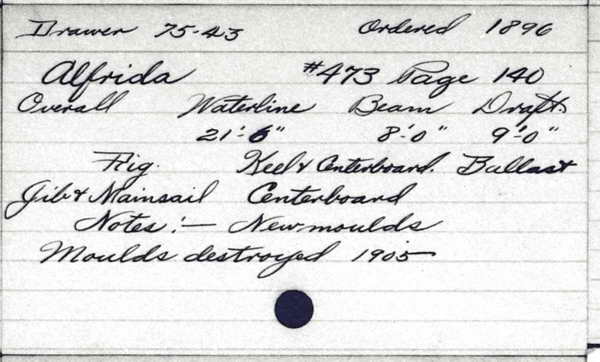 Drawer 75-43 Ordered 1896
Alfrida #473 Page 140
Overall Waterline Beam Draft.
21'-6" 8'-0" 9'-0"
Rig. Keel & Centerboard. Ballast
Jib & Mainsail Centerboard
Notes:— New moulds
Moulds destroyed 1905